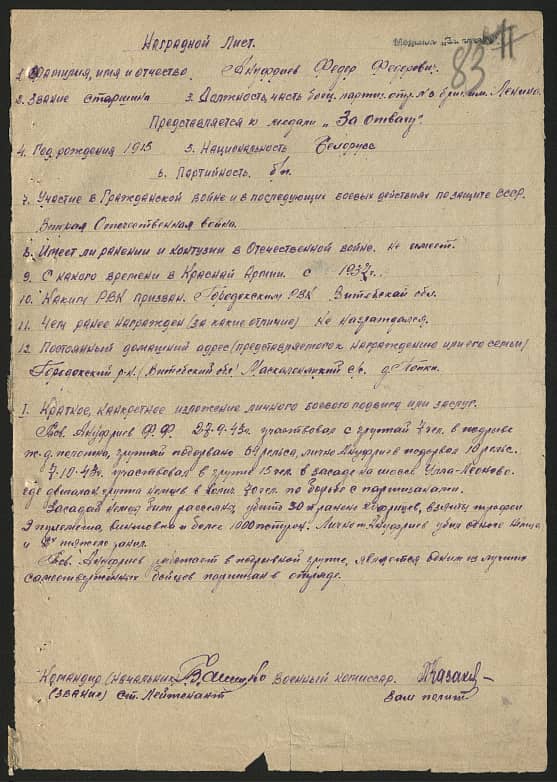 Наградной Лист.
83
1. Фамилия, имя и отчество Ануфриев Федор Федорович.
2. Звание старшина 3. Должность, часть боец. партиз. отр. №3 бриг. им. Ленина.
Представляется к медали „За отвагу“.
4. Год рождения 1915 5. Национальность Белорусс
6. Партийность. б/п.
7. Участие в Гражданской войне и в последующих боевых действиях по защите СССР.
Вторая Отечественная война.
8. Имеет ли ранении и контузии в Отечественной войне. не имеет.
9. С какого времени в Красной Армии. с 1937г.
10. Каким РВК призван. Городокским РВК Витебской обл.
11. Чем ранее награжден (за какие отличие) Не награждался.
12. Постоянный домашний адрес (представляемого к награждению или его семьи)
Городокский р-н, Витебской обл. с/с. д. Попки.
I. Краткое, канкретное изложение личного боевого подвига или заслуг.
Тов. Ануфриев Ф.Ф. 27.9.43г. участвовал с групой 7 чел. в подрыве
ж.д. полотна, групой подорвано 64 рельса, лично Ануфриев подорвал 10 рельс.
7.10.43г. участвовал в групе 15 чел. в засаде на шоссе Улла-
где двигалась група немцев в колич. 70 чел. по борьбе с партизанами.
Засадой немец был рассеян, убито 30 и ранено взяты трофеи
3 пулемета, винтовки и более 1000 патрон. Лично Ануфриев убил одного немца
и тяжело ранил.
Тов. Ануфриев работает в подрывной групе, является одним из лучших
самоотверженных бойцев партизан в отряде.
Командир (начальник) Военный комиссар. Казак
(звание) Ст. Лейтенант Зам полит.